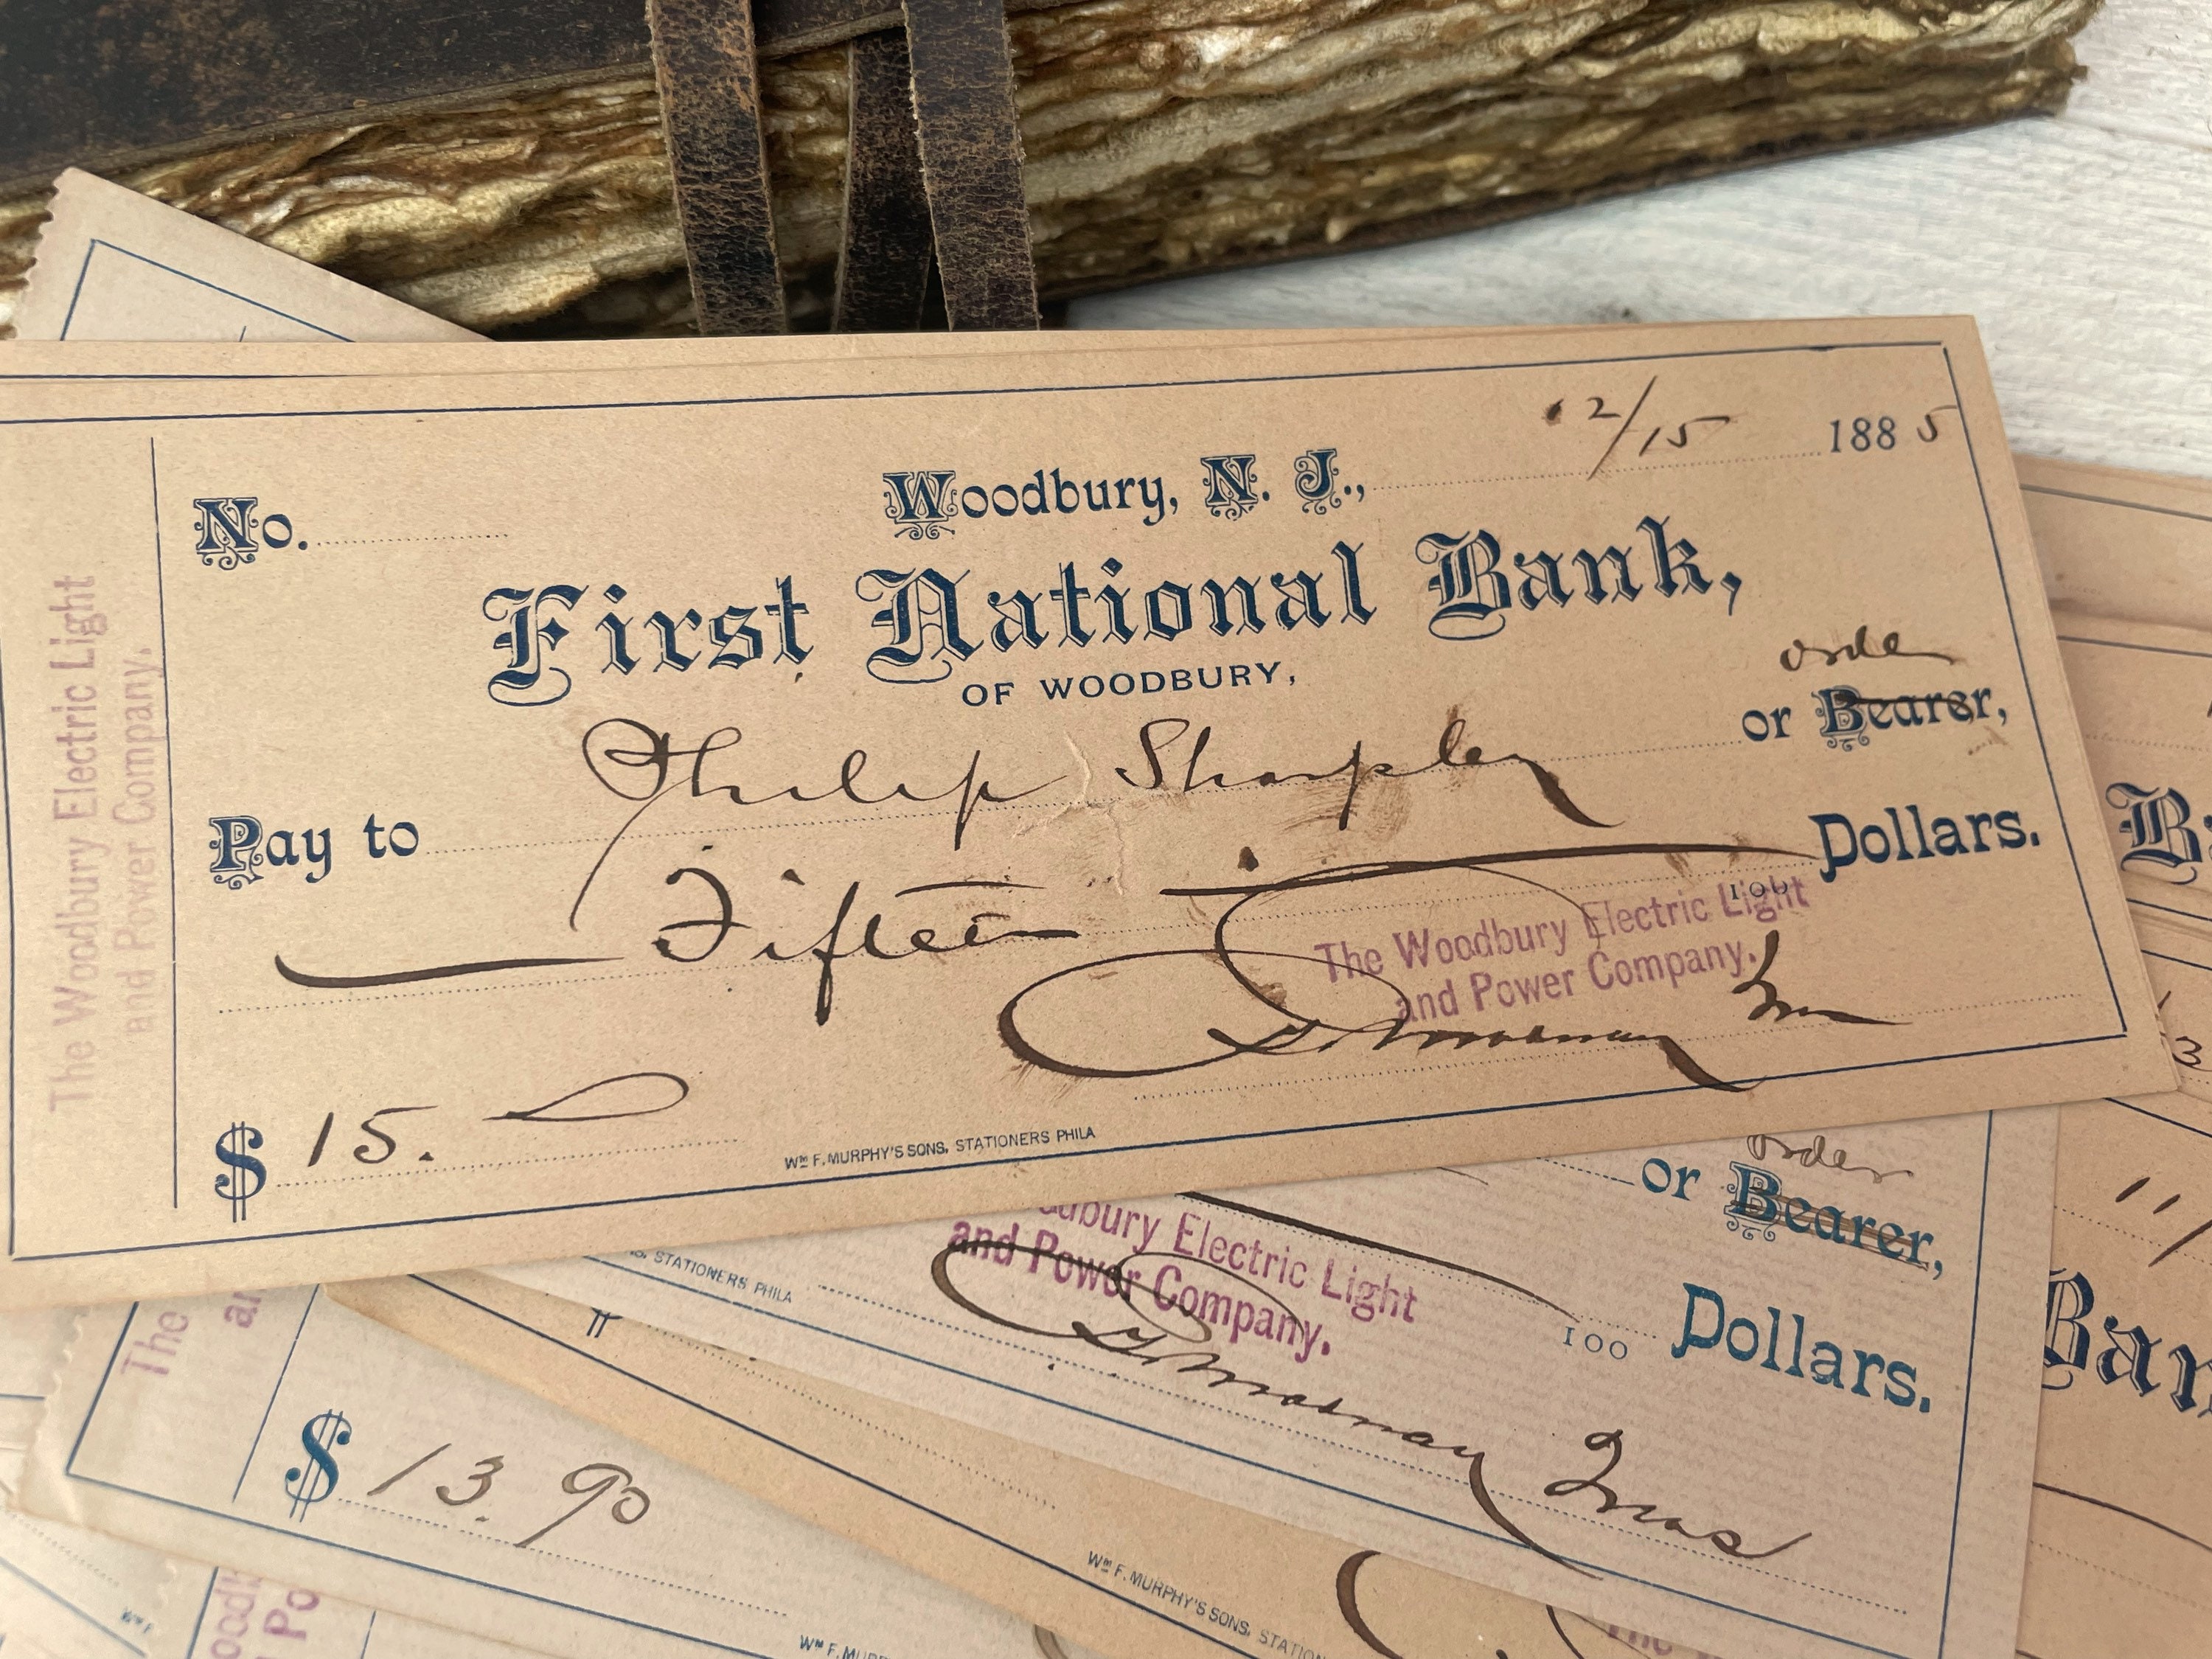 12/15 1885
Woodbury, N. J.,
No.
First National Bank,
OF WOODBURY,
order
or Bearer,
Pay to Philip Sharpley
Dollars.
Fifteen
100
The Woodbury Electric Light
and Power Company.
$ 15.
WM F. MURPHY'S SONS, STATIONERS PHILA
The Woodbury Electric Light
and Power Company.
order
or Bearer,
dbury Electric Light
and Power Company.
100 Dollars.
S, STATIONERS PHILA
Treas
The
$ 13.90
WM F. MURPHY'S SONS, STATION
WM F. MUR
B
11/
Ban
The